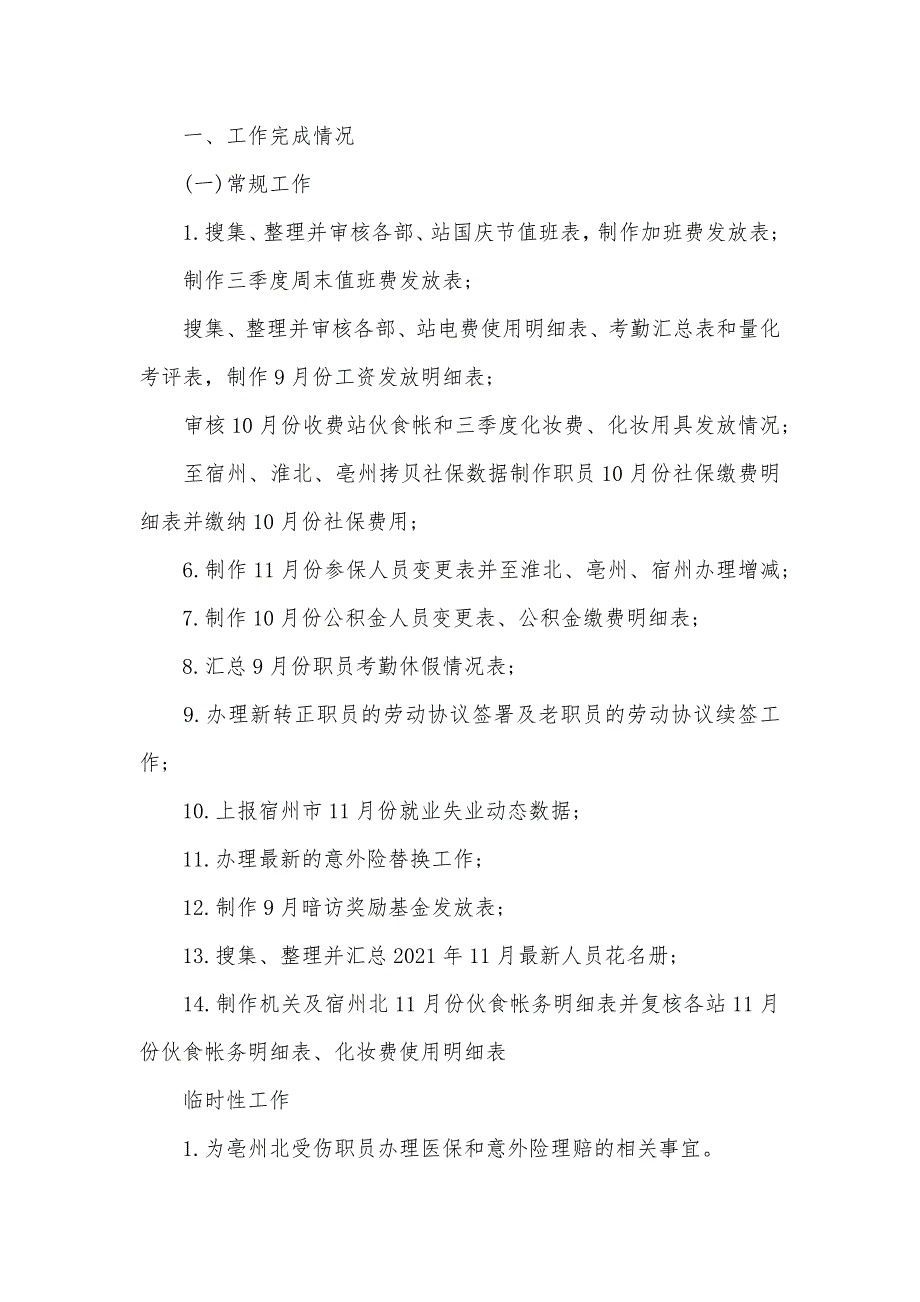 一、工作完成情况
(一)常规工作
1.搜集、整理并审核各部、站国庆节值班表,制作加班费发放表;
制作三季度周末值班费发放表;
搜集、整理并审核各部、站电费使用明细表、考勤汇总表和量化
考评表，制作 9 月份工资发放明细表;
审核 10 月份收费站伙食帐和三季度化妆费、化妆用具发放情况;
至宿州、淮北、亳州拷贝社保数据制作职员 10 月份社保缴费明
细表并缴纳 10 月份社保费用;
6.制作 11 月份参保人员变更表并至淮北、亳州、宿州办理增减;
7.制作 10 月份公积金人员变更表、公积金缴费明细表;
8.汇总 9 月份职员考勤休假情况表;
9.办理新转正职员的劳动协议签署及老职员的劳动协议续签工
作;
10.上报宿州市 11 月份就业失业动态数据;
11.办理最新的意外险替换工作;
12.制作 9 月暗访奖励基金发放表;
13.搜集、整理并汇总 2021 年 11 月最新人员花名册;
14.制作机关及宿州北 11 月份伙食帐务明细表并复核各站 11 月
份伙食帐务明细表、化妆费使用明细表
临时性工作
1.为亳州北受伤职员办理医保和意外险理赔的相关事宜。